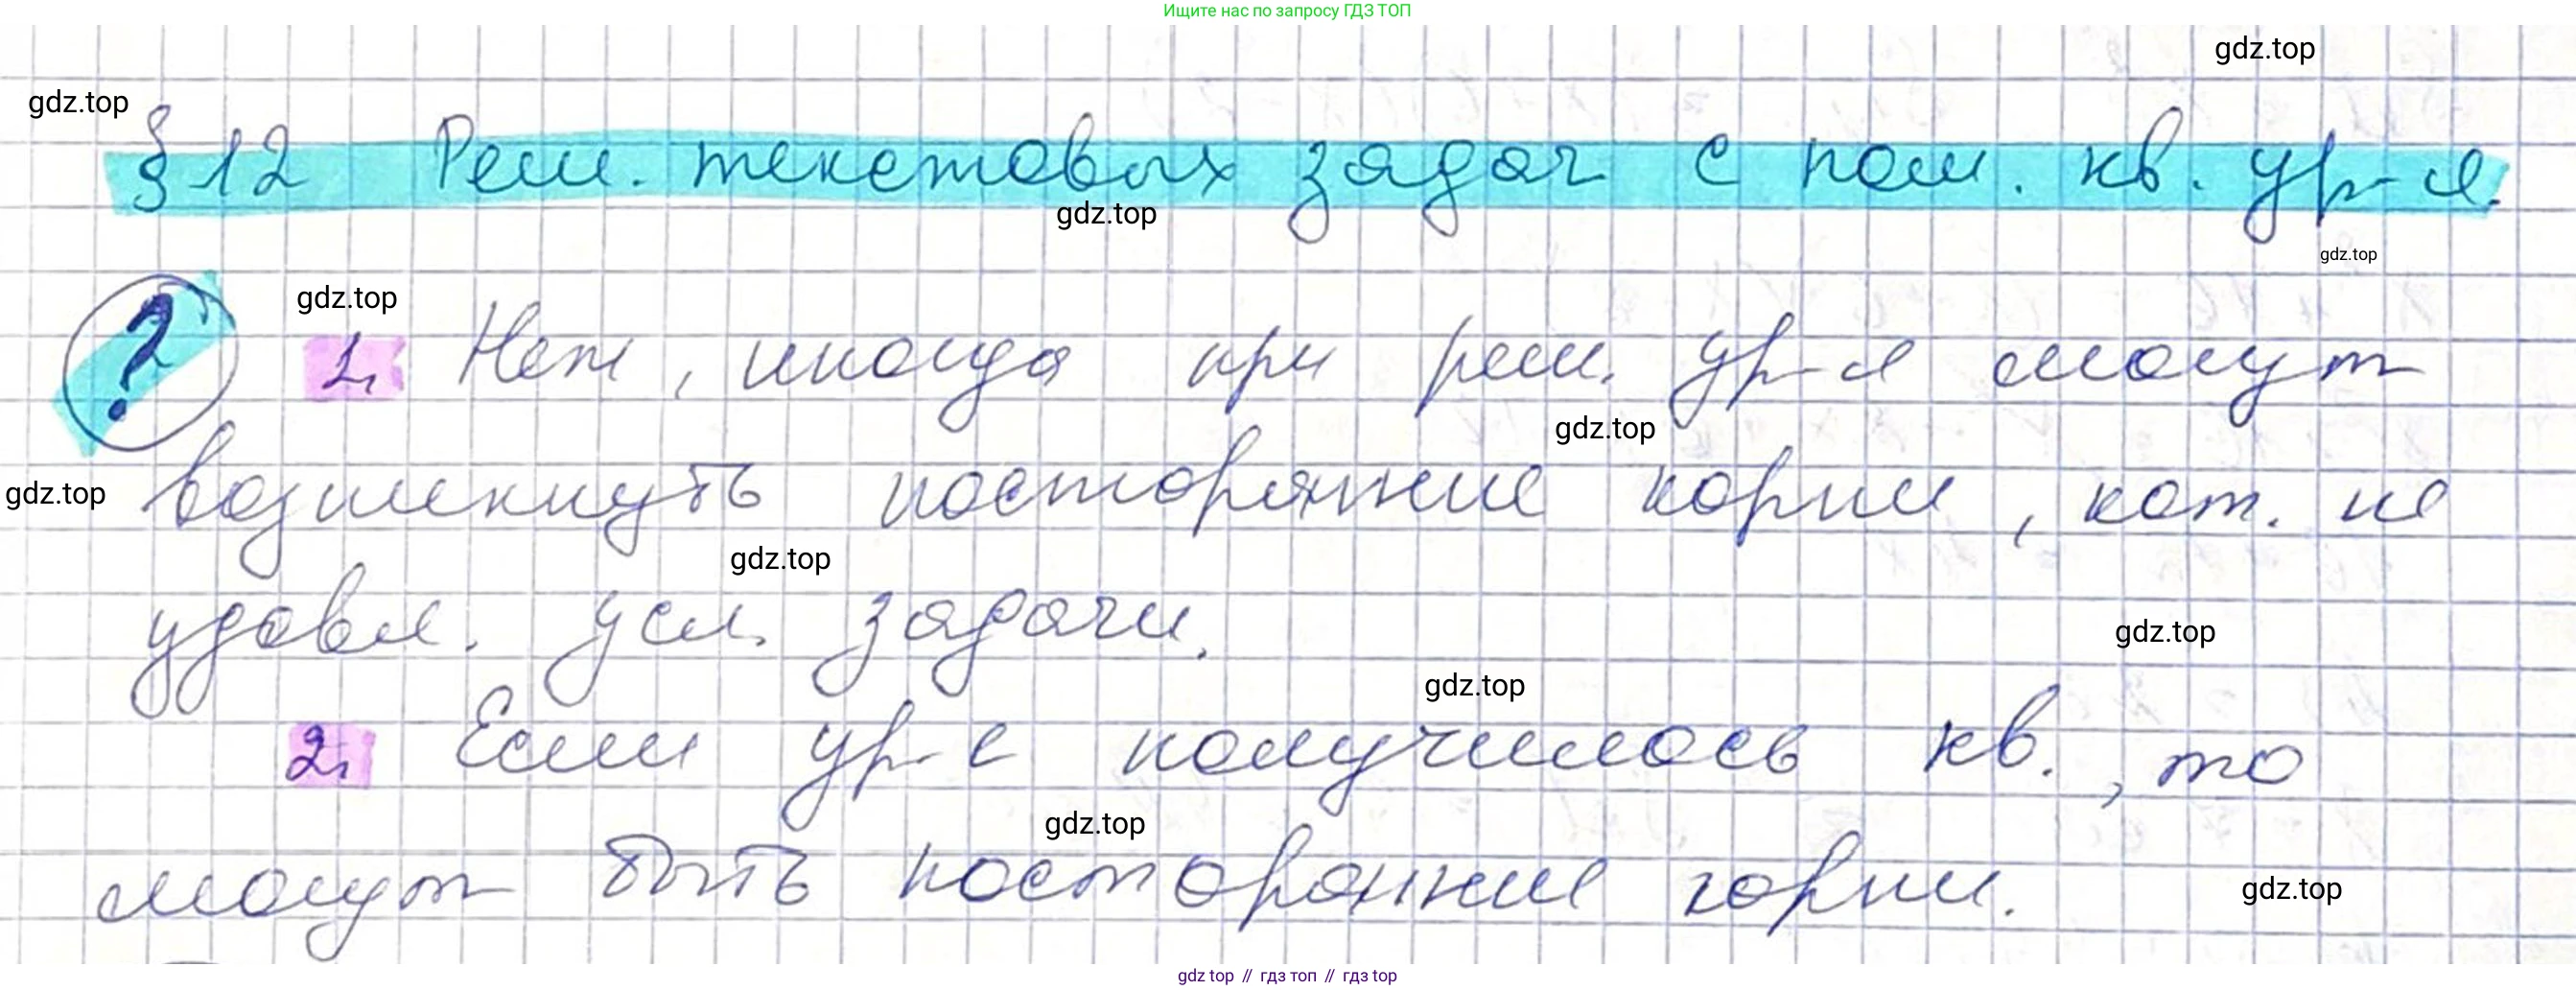 Ищите нас по запросу ГДЗ ТОП
gdz.top
gdz.top
§ 12 Реш. текстовых задач с пом. кв. ур-я.
gdz.top
gdz.top
gdz.top
? 1. Нет, иногда при реш. ур-я могут
gdz.top
возникнуть посторонние корни, кот. не
gdz.top
gdz.top
удовл. усл. задачи.
gdz.top
gdz.top
2. Если ур-е получилось кв., то
gdz.top
могут быть посторонние корни.
gdz.top
gdz top // гдз топ // гдз top